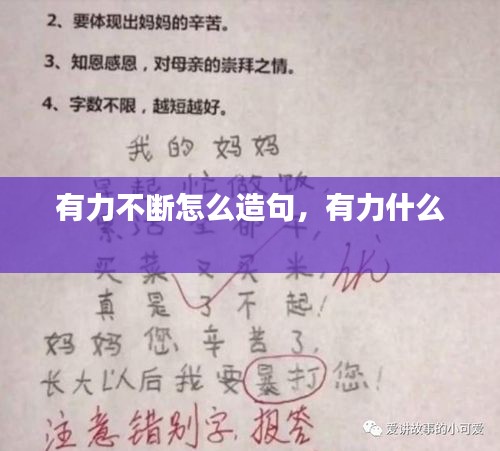 2、要体现出妈妈的辛苦。
3、知恩感恩，对母亲的崇拜之情。
4、字数不限，越短越好。
我的妈妈
有力不断怎么造句，有力什么
买菜又买米，优
真是了不起！
妈妈您辛苦了，
长大以后我要暴打您！
注意错别字，报答
爱讲故事的小可爱